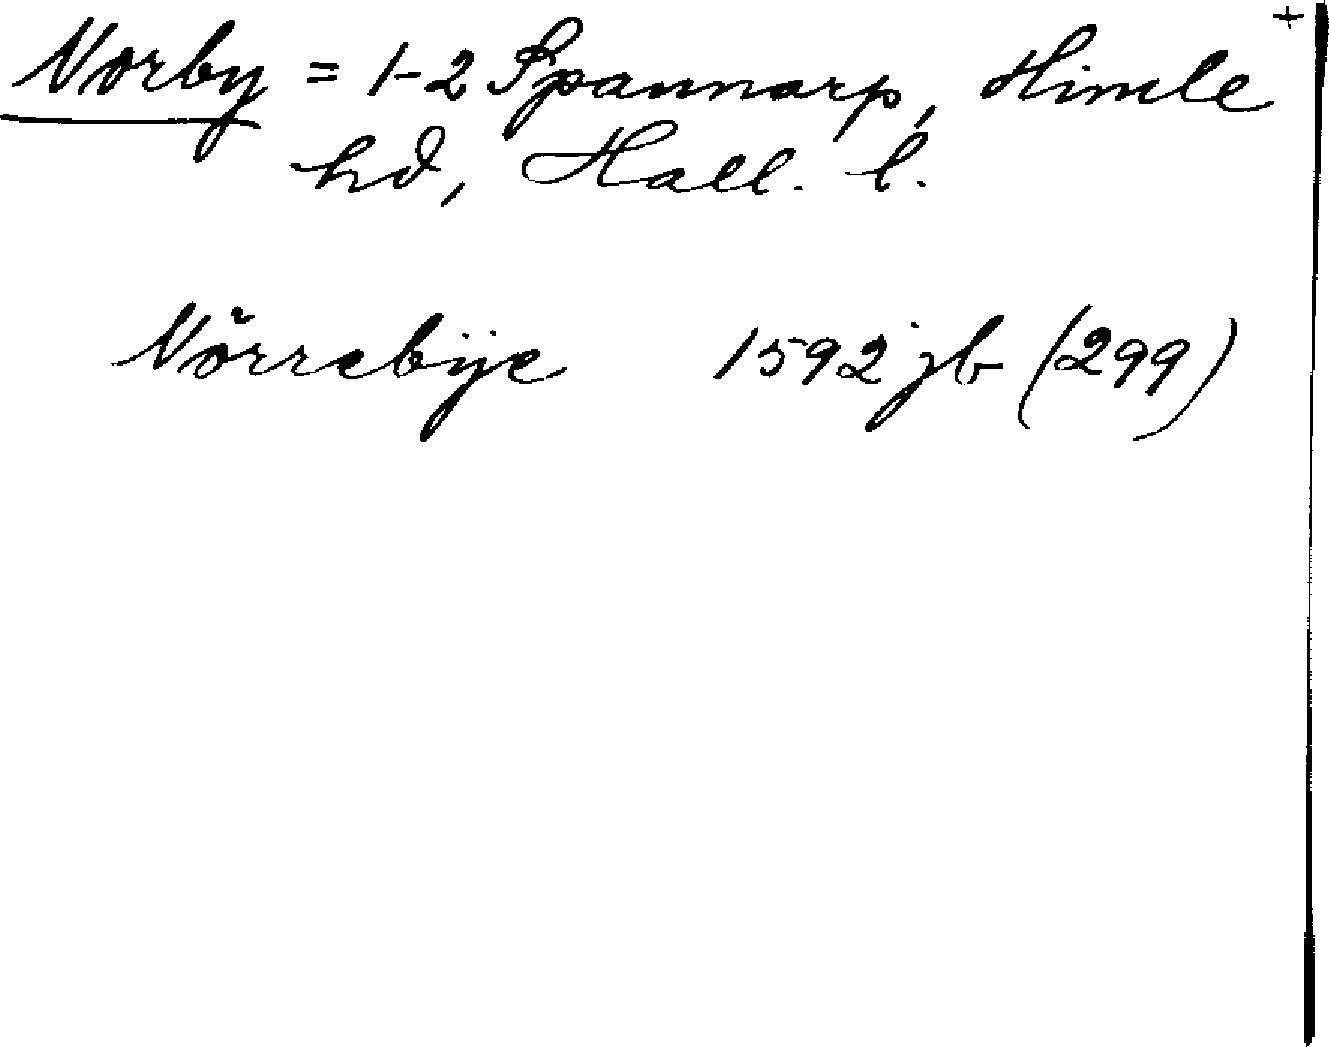 +
Norby = 1-2 Spannarp, Himle
hd, Hall. l.
Nörrebÿe 1592 jb (299)